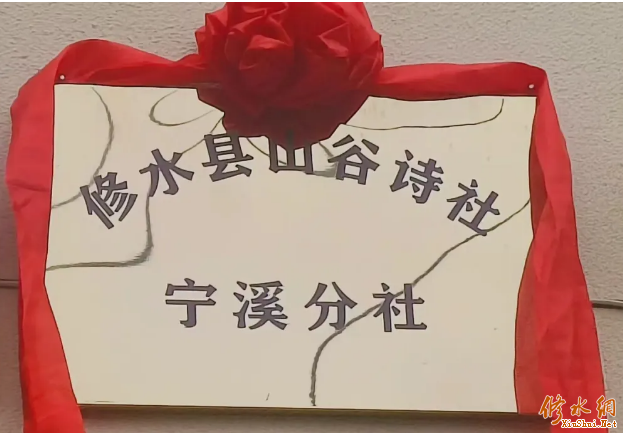 修水县山谷诗社
宁溪分社
修水網
XiuShui.Net